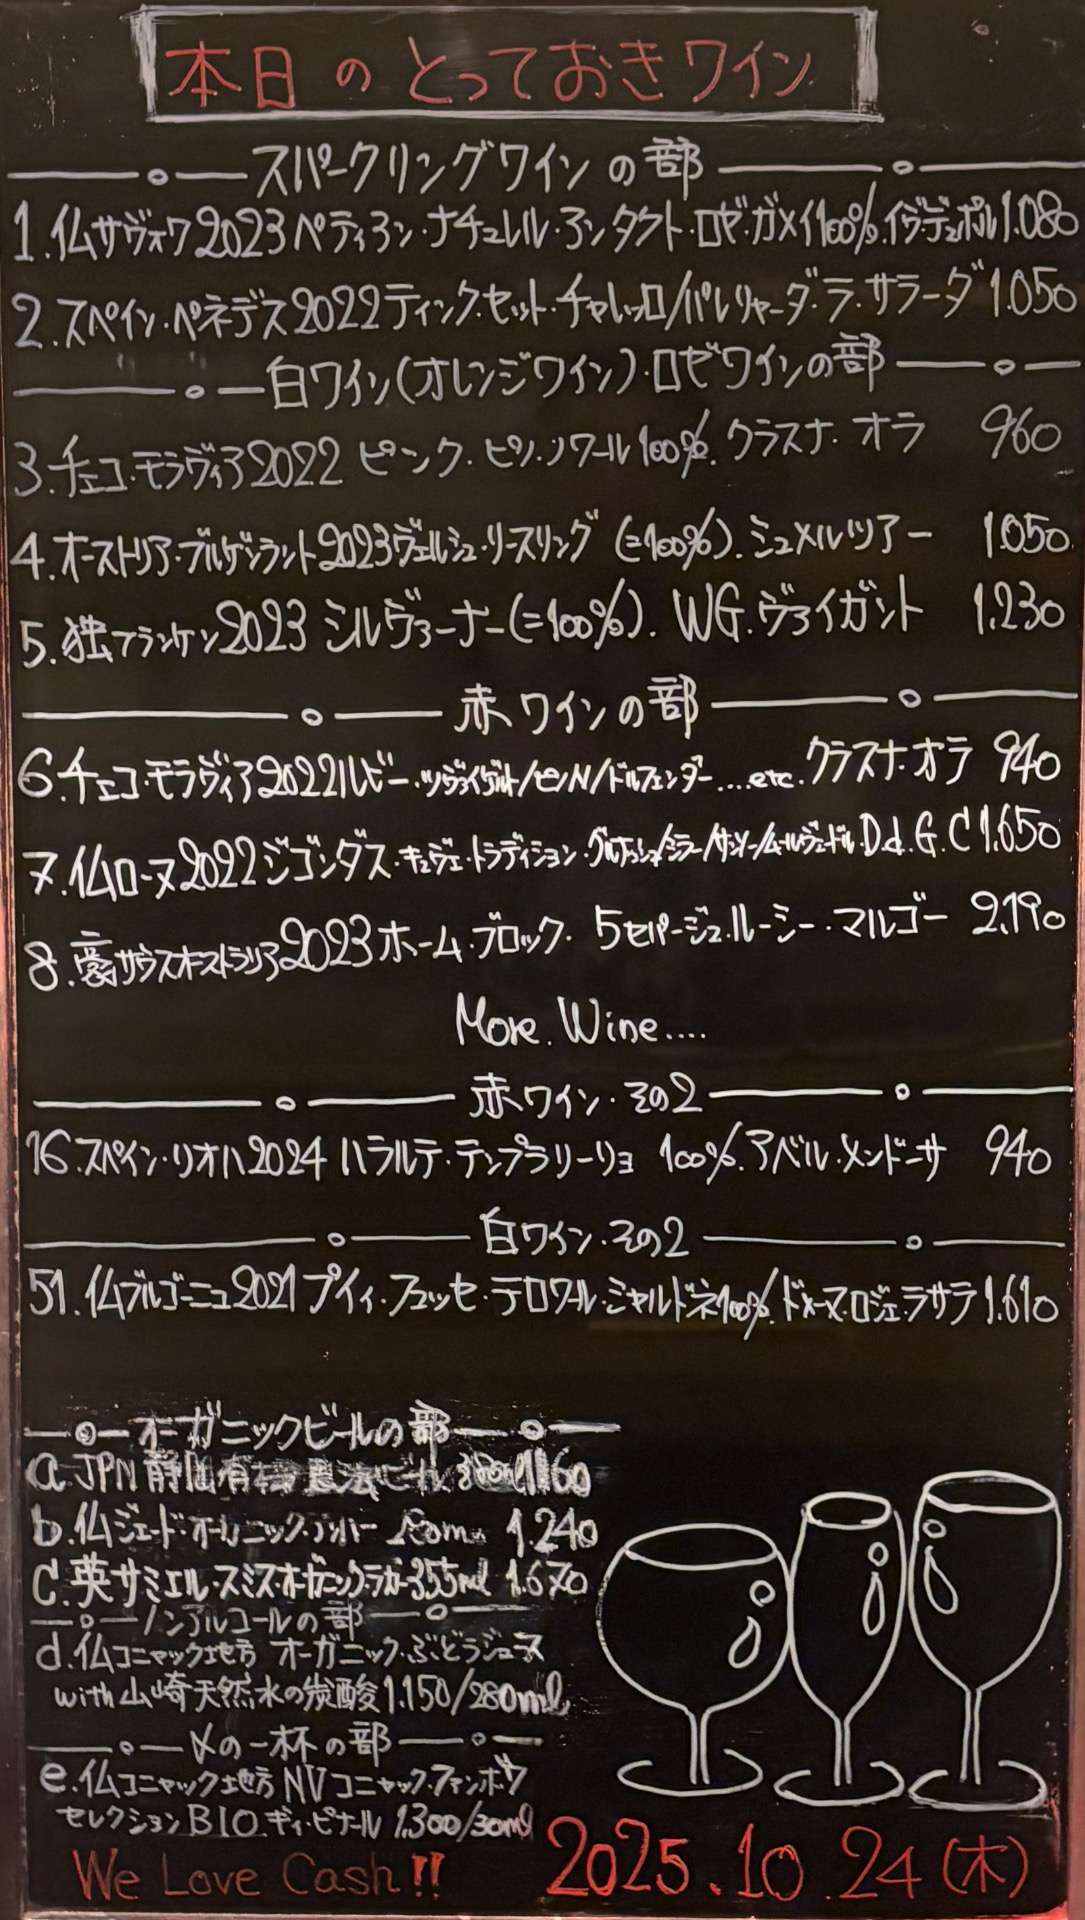 本日のとっておきワイン
スパークリングワインの部
1.仏サヴォワ2023ペティアン・ナチュレル・アンタクト・ロゼ・ガメイ100%.イヴ・デュポル1.080
2.スペイン・ペネデス2022ティンク・セット・チャレッロ/パレリャーダ・ラ・サラーダ1.050
白ワイン(オレンジワイン)・ロゼワインの部
3.チェコ・モラヴィア2022ピンク・ピノ・ノワール100%.クラスナ・オラ 960
4.オーストリア・ブルゲンラント2023ヴェルシュ・リースリング(=100%).シュメルツアー 1.050
5.独フランケン2023シルヴァーナー(=100%). WG.ヴァイガント 1.230
赤ワインの部
6.チェコ・モラヴィア2022ルビー・ツヴァイゲルト/ピノN/ドルフェンダー....etc.クラスナ・オラ 940
7.仏ローヌ2022ジゴンダス・キュヴェ・トラディション・グルナッシュ/シラー/サンソー/ムールヴェードル.D.d.G.C 1.650
8.豪サウスオーストラリア2023ホーム・ブロック・5セパージュ・ルーシー・マルゴー 2.190
More.Wine....
赤ワイン・その2
16.スペイン・リオハ2024ハラルテ・テンプラリーリョ 100%.アベル・メンドーサ 940
白ワイン・その2
51.仏ブルゴーニュ2021プイィ・フュッセ・テロワール・シャルドネ100%.ドメーヌ・ロジェ・ラサラ1.610
オーガニックビールの部
a.JPN 静岡有機農法ビール 1160
b.仏ジェード・オーガニック・アンバー 1.240
C.英サミエル・スミス・オーガニックラガー355ml 1.670
ノンアルコールの部
d.仏コニャック地方 オーガニック・ぶどうジュース
with山崎天然水の炭酸1.150/280ml
〆の一杯の部
e.仏コニャック地方NVコニャック・ファンボワ
セレクションBIO.ギィ・ピナール 1.300/30ml
We Love Cash!!
2025.10.24(木)